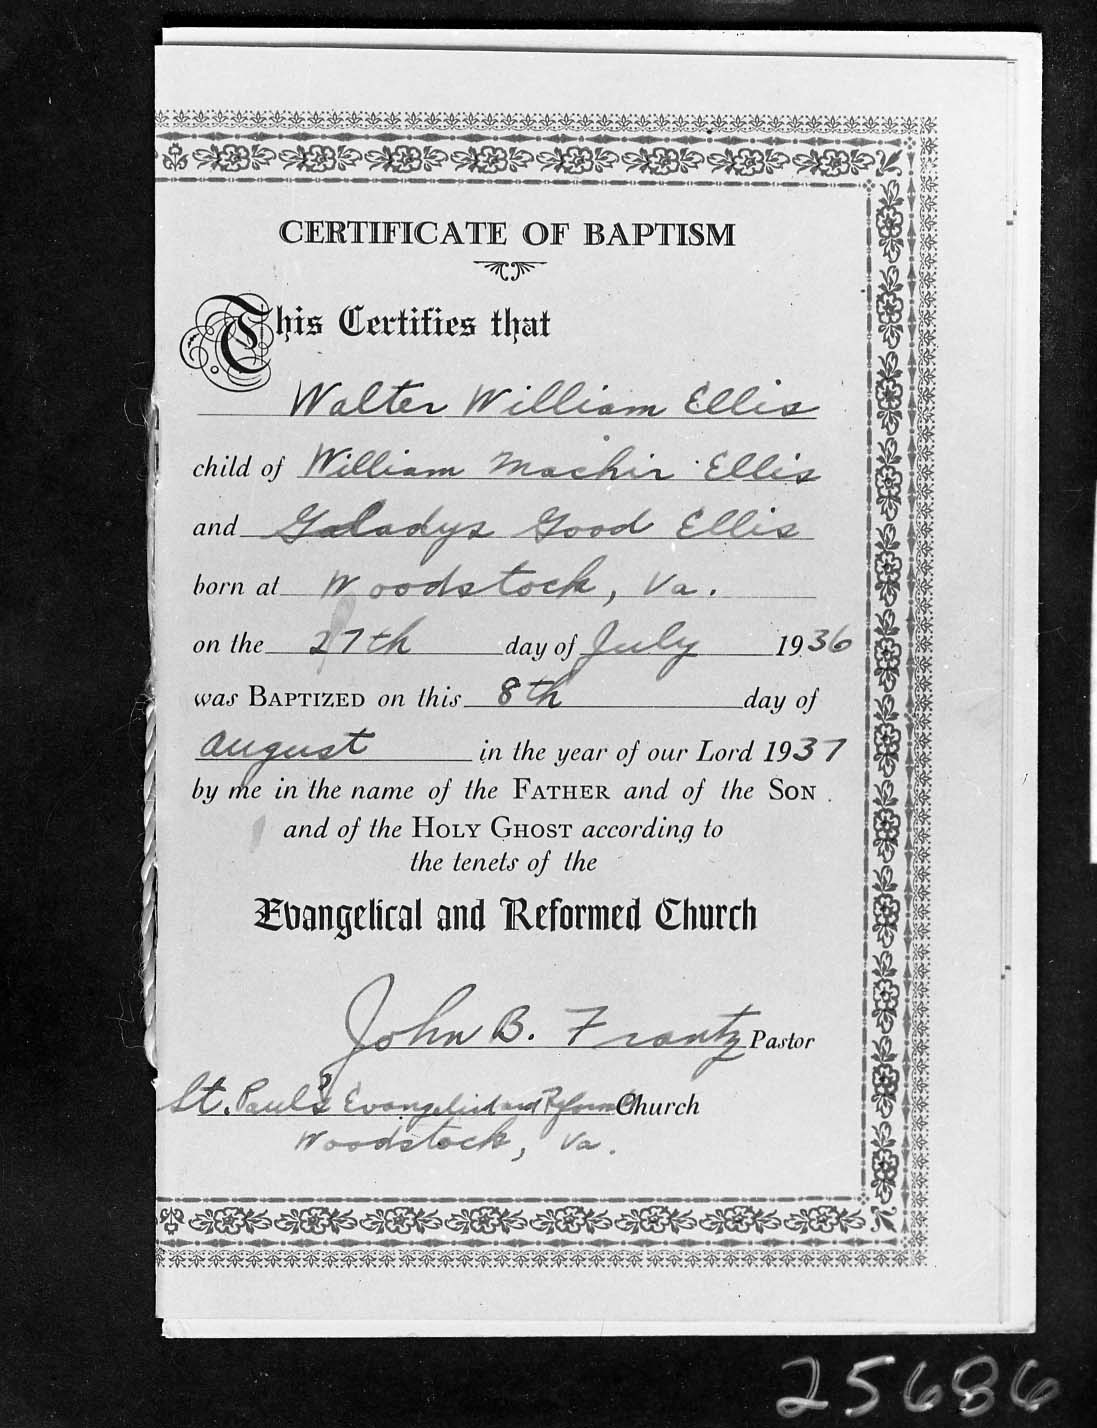 CERTIFICATE OF BAPTISM
This Certifies that
Walter William Ellis
child of William Machir Ellis
and Galadys Good Ellis
born at Woodstock, Va.
on the 27th day of July 1936
was BAPTIZED on this 8th day of
August in the year of our Lord 1937
by me in the name of the FATHER and of the SON
and of the HOLY GHOST according to
the tenets of the
Evangelical and Reformed Church
John B. Frantz Pastor
St. Paul's Evangelical and Reformed Church
Woodstock, Va.
25686